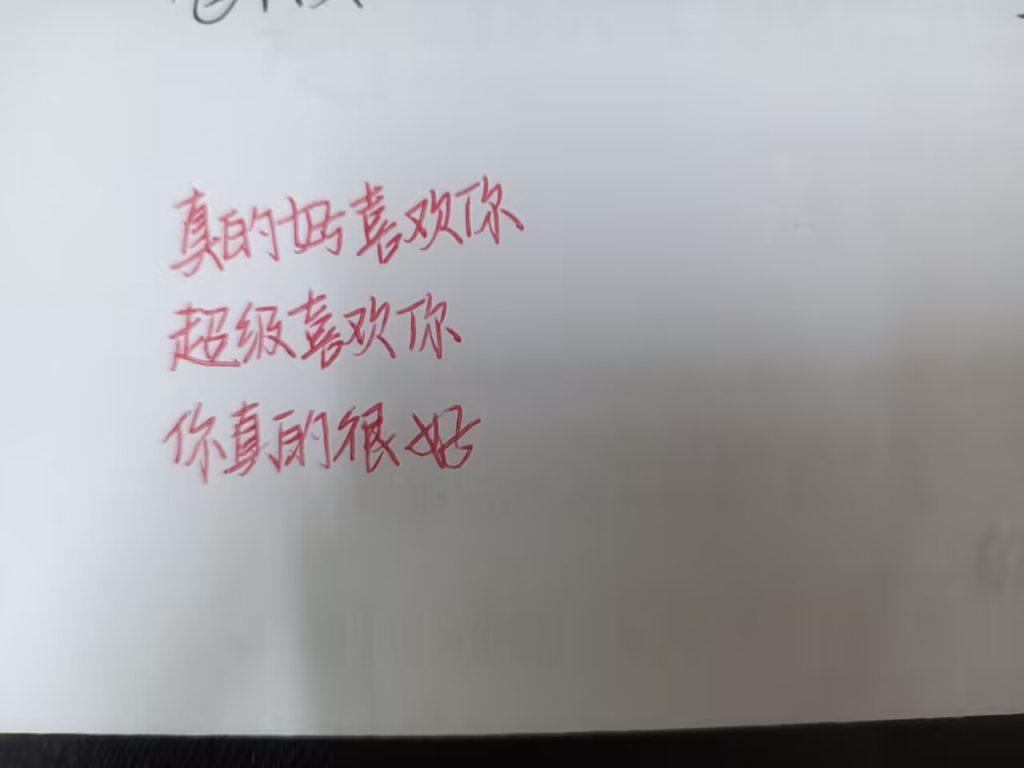 真的好喜欢你
超级喜欢你
你真的很好